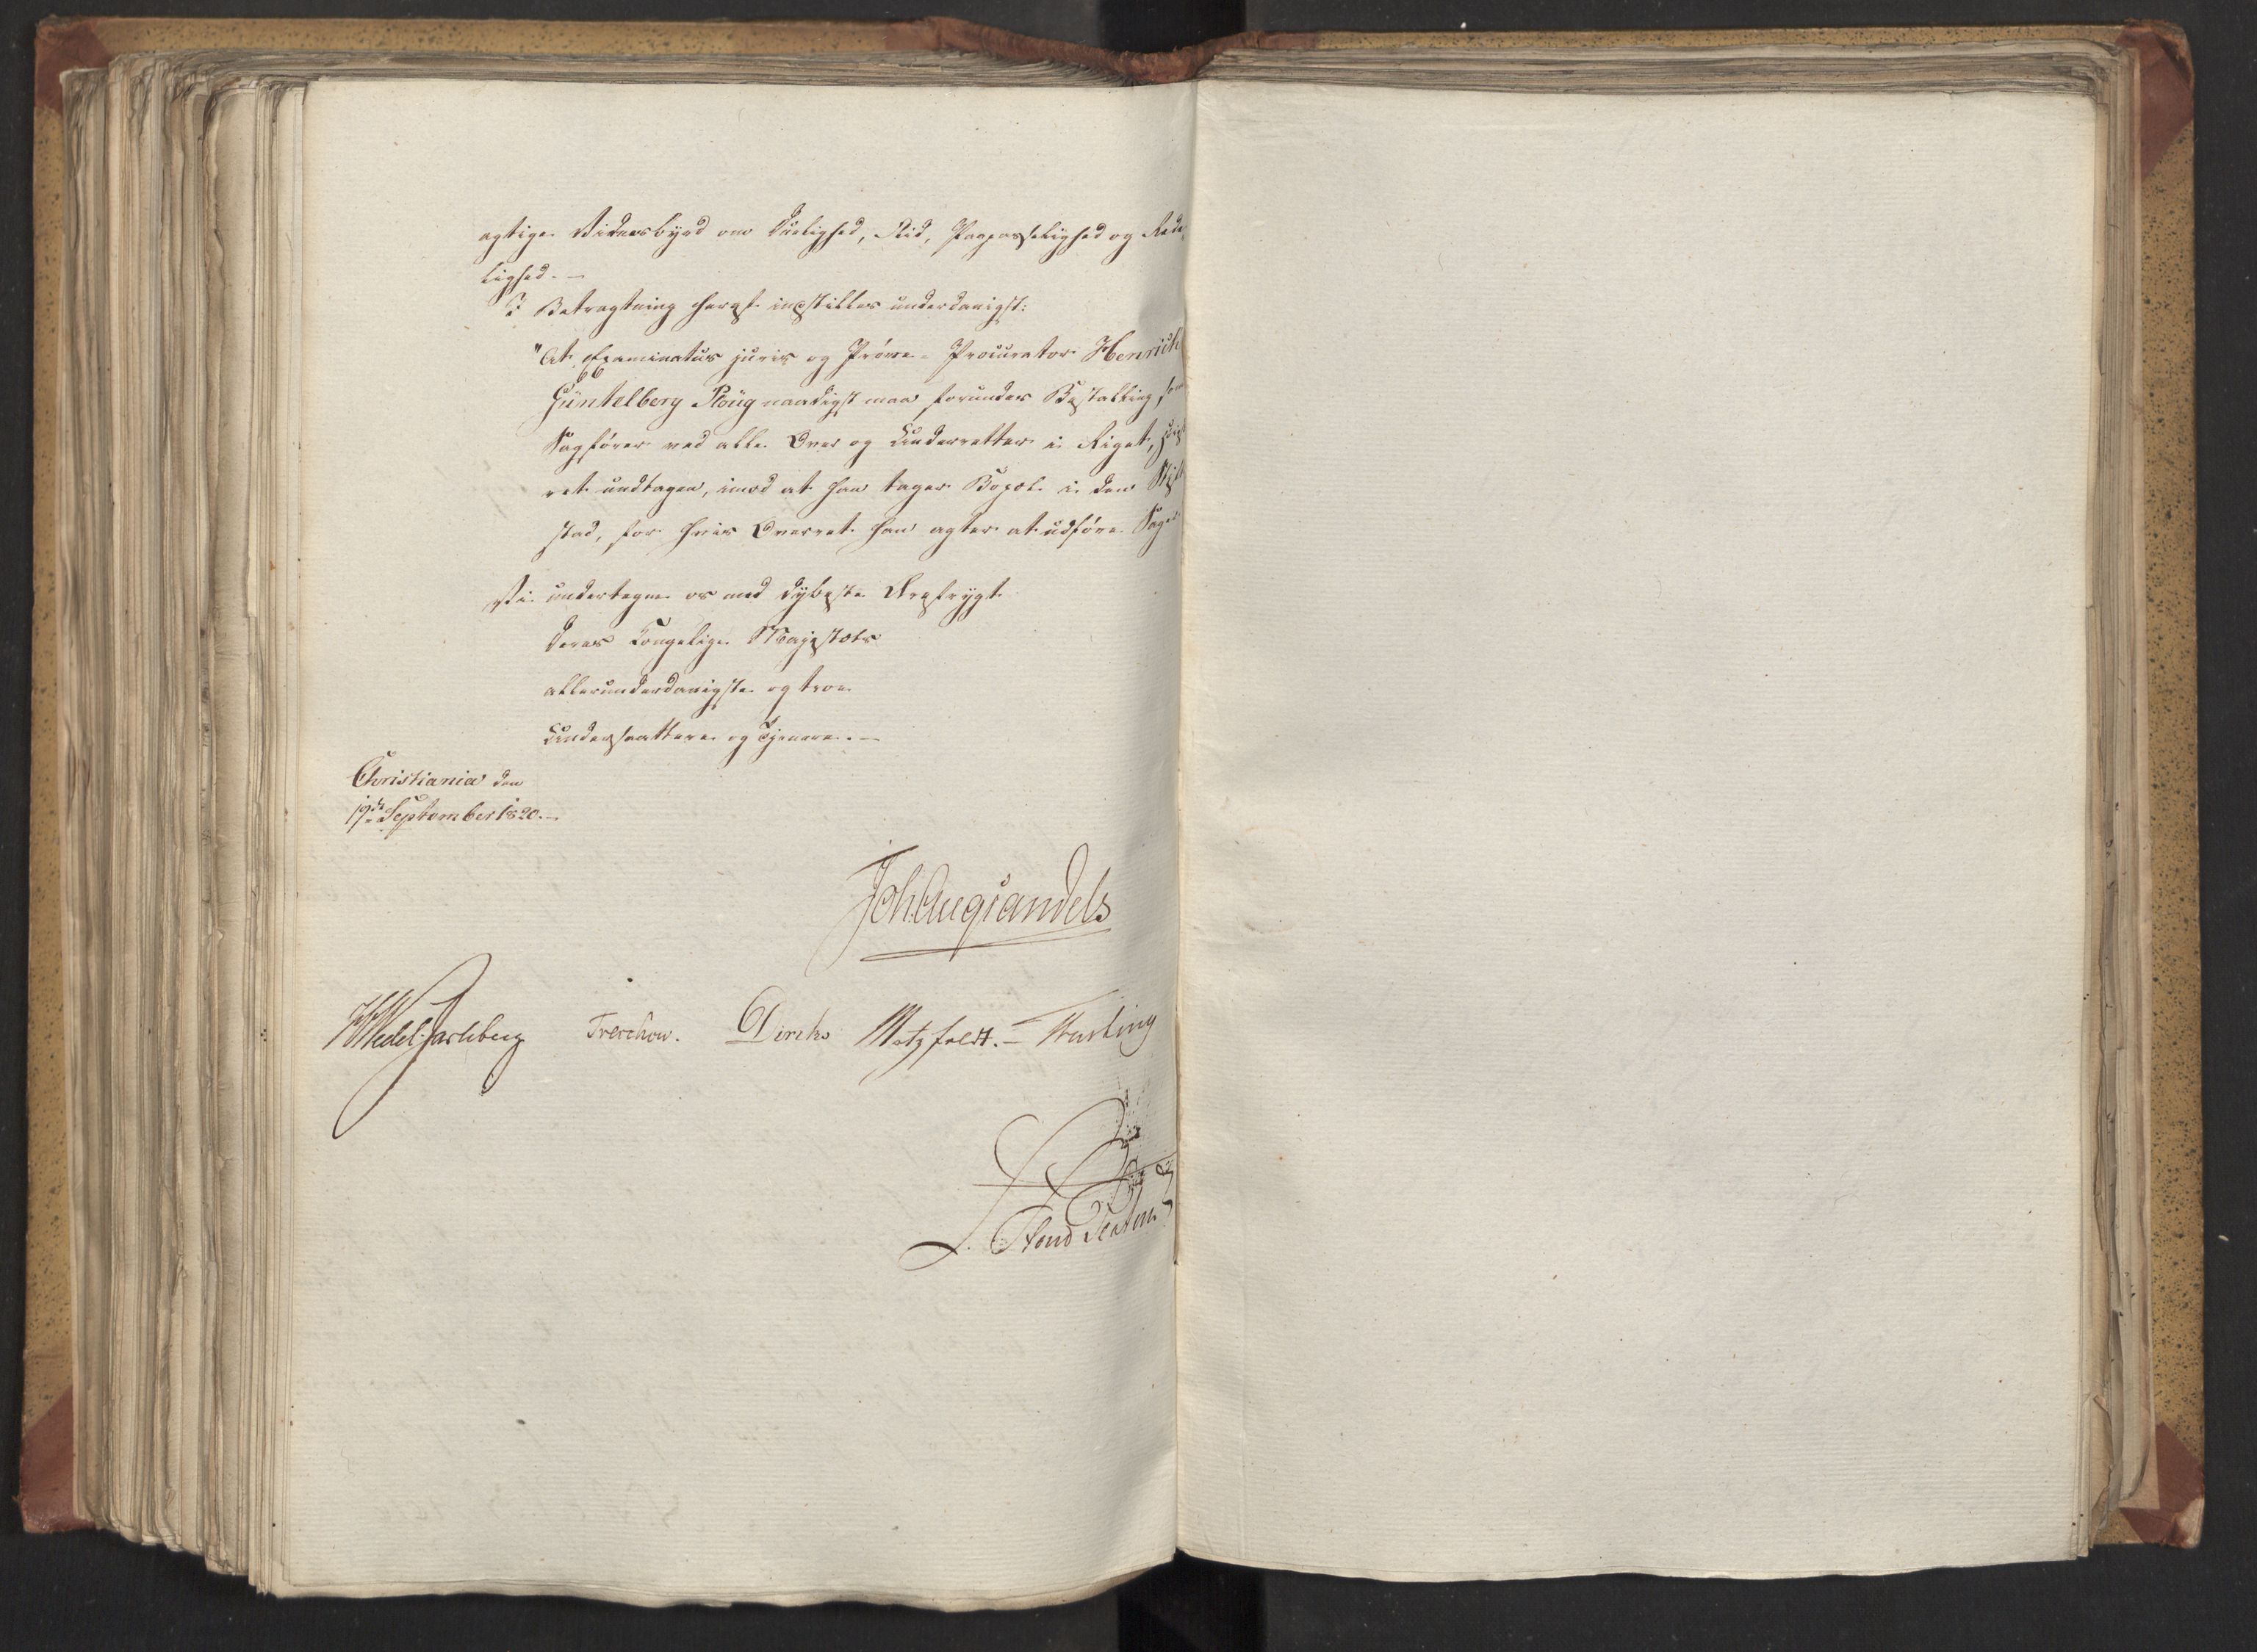 agtige Vidnesbyrd om Duelighed, Flid, Paapasselighed og Rede-
lighed. –
I Betragtning heraf indstilles underdanigst:
"At Examinatus juris og Prøve-Procurator Henrich
Güntelberg Ploüg naadigst maa forundes Bestalling som
Sagfører ved alle Over og Underretter i Riget, Høieste-
ret undtagen, imod at han tager Bopæl i den Stift-
stad, for hvis Overret han agter at udføre Sager.
Vi undertegne os med dybeste Ærefrygt
Deres Kongelige Majestæts
allerunderdanigste og troe
Undersaattere og Tjenere. –
Christiania den
19de September 1820. –
Joh. Aug. Sandels
HWedel Jarlsberg Treschow. Diriks Motzfeldt. – Fasting